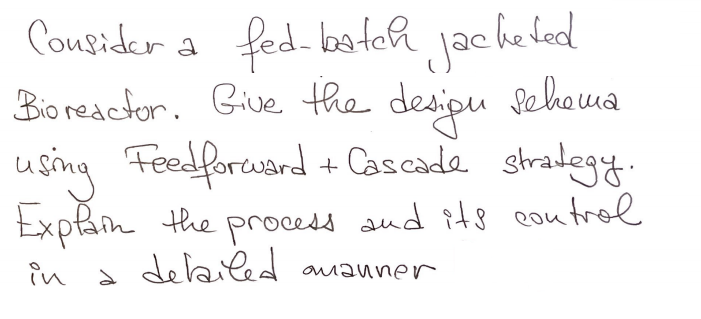 Consider a fed-batch jacketed
Bioreactor. Give the design schema
using Feedforward + Cascade strategy.
Explain the process and its control
in a detailed manner